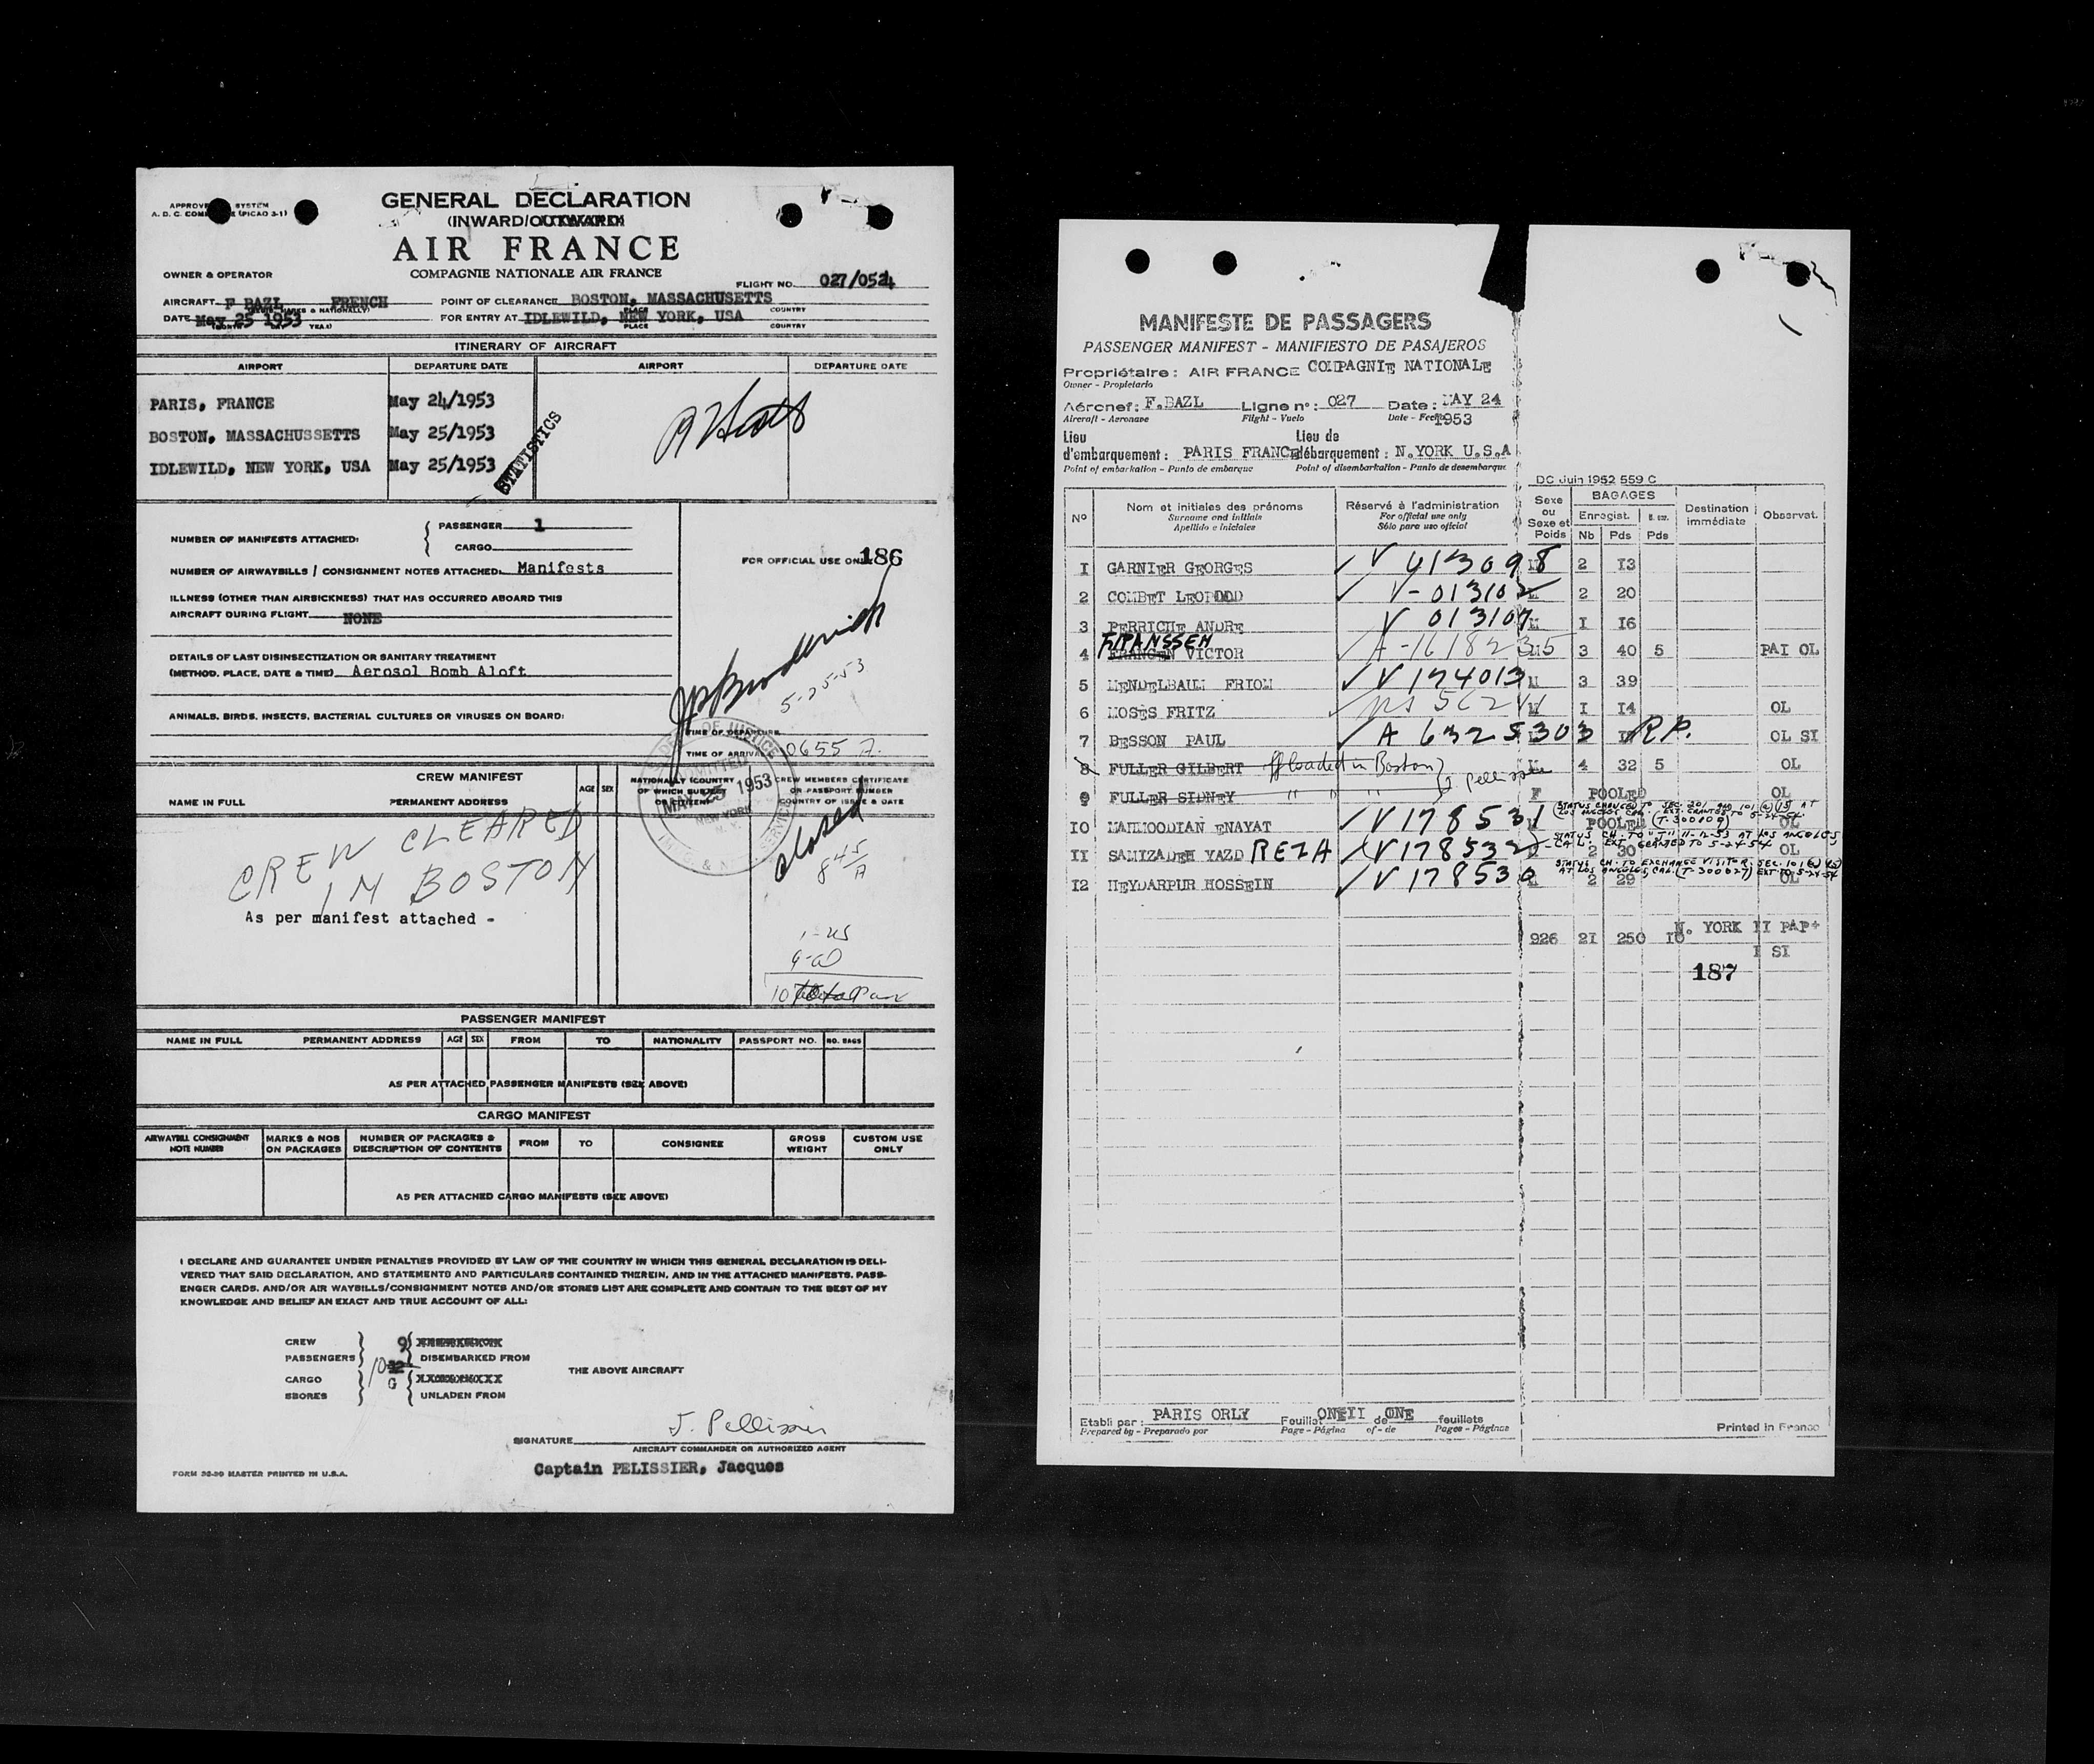 GENERAL DECLARATION
(INWARD/OUTWARD)
AIR FRANCE
COMPAGNIE NATIONALE AIR FRANCE
OWNER & OPERATOR
FLIGHT NO. 027/0524
AIRCRAFT F BAZL FRENCH POINT OF CLEARANCE BOSTON, MASSACHUSETTS
DATE May 25 1953 FOR ENTRY AT IDLEWILD, NEW YORK, USA
PLACE COUNTRY
ITINERARY OF AIRCRAFT
AIRPORT DEPARTURE DATE AIRPORT DEPARTURE DATE
PARIS, FRANCE May 24/1953
BOSTON, MASSACHUSSETTS May 25/1953
IDLEWILD, NEW YORK, USA May 25/1953
STATISTICS
NUMBER OF MANIFESTS ATTACHED: PASSENGER 1
CARGO
FOR OFFICIAL USE ONLY 186
NUMBER OF AIRWAYBILLS / CONSIGNMENT NOTES ATTACHED: Manifests
ILLNESS (OTHER THAN AIRSICKNESS) THAT HAS OCCURRED ABOARD THIS
AIRCRAFT DURING FLIGHT NONE
DETAILS OF LAST DISINSECTIZATION OR SANITARY TREATMENT
(METHOD, PLACE, DATE & TIME) Aerosol Bomb Aloft
5-25-53
ANIMALS, BIRDS, INSECTS, BACTERIAL CULTURES OR VIRUSES ON BOARD:
TIME OF DEPARTURE
TIME OF ARRIVAL 0655 A.
ADMITTED
MAY 25 1953
NEW YORK
CREW MANIFEST
NAME IN FULL PERMANENT ADDRESS AGE SEX NATIONALITY (COUNTRY OF WHICH SUBJECT OR CITIZEN) CREW MEMBERS CERTIFICATE OR PASSPORT NUMBER COUNTRY OF ISSUE & DATE
closed
845 A
CREW CLEARED
IN BOSTON
As per manifest attached -
1-US
9-a
10 total Pass
PASSENGER MANIFEST
NAME IN FULL PERMANENT ADDRESS AGE SEX FROM TO NATIONALITY PASSPORT NO. NO. BAGS
AS PER ATTACHED PASSENGER MANIFESTS (SEE ABOVE)
CARGO MANIFEST
AIRWAYBILL CONSIGNMENT NOTE NUMBER MARKS & NOS ON PACKAGES NUMBER OF PACKAGES & DESCRIPTION OF CONTENTS FROM TO CONSIGNEE GROSS WEIGHT CUSTOM USE ONLY
AS PER ATTACHED CARGO MANIFESTS (SEE ABOVE)
I DECLARE AND GUARANTEE UNDER PENALTIES PROVIDED BY LAW OF THE COUNTRY IN WHICH THIS GENERAL DECLARATION IS DELI-
VERED THAT SAID DECLARATION, AND STATEMENTS AND PARTICULARS CONTAINED THEREIN, AND IN THE ATTACHED MANIFESTS, PASS-
ENGER CARDS, AND/OR AIR WAYBILLS/CONSIGNMENT NOTES AND/OR STORES LIST ARE COMPLETE AND CONTAIN TO THE BEST OF MY
KNOWLEDGE AND BELIEF AN EXACT AND TRUE ACCOUNT OF ALL:
CREW 9
PASSENGERS 10 DISEMBARKED FROM
THE ABOVE AIRCRAFT
CARGO G
SBORES UNLADEN FROM
SIGNATURE J. Pellissier
AIRCRAFT COMMANDER OR AUTHORIZED AGENT
Captain PELISSIER, Jacques
FORM 32-30 MASTER PRINTED IN U.S.A.
MANIFESTE DE PASSAGERS
PASSENGER MANIFEST - MANIFIESTO DE PASAJEROS
Propriétaire : AIR FRANCE COMPAGNIE NATIONALE
Owner - Propietario
Aéronef : F.BAZL Ligne n° : 027 Date : MAY 24
Aircraft - Aeronave Flight - Vuelo Date - Fecha 1953
Lieu d'embarquement : PARIS FRANCE Lieu de débarquement : N.YORK U.S.A
Point of embarkation - Punto de embarque Point of disembarkation - Punto de desembarque
DC Juin 1952 559 C
N° Nom et initiales des prénoms Réservé à l'administration Sexe ou Sexe et Poids BAGAGES Destination immédiate Observat.
Surname and initials For official use only Enregist.
Apellido e iniciales Sólo para uso oficial Nb Pds Pds
1 GARNIER GEORGES V 413098 2 13
2 COMBET LEOPOLD V-013102 2 20
3 PERRICHE ANDRE V 013107 M 1 16
FRANSSEN
4 FRANCEN VICTOR A-16182335 3 40 5 PAI OL
5 MENDELBAUM FRIOM V 174013 M 3 39
6 MOSES FRITZ M 1 14 OL
7 BESSON PAUL A 6325303 R.P. OL SI
8 FULLER GILBERT offloaded in Boston J Pellissier M 4 32 5 OL
9 FULLER SIDNEY " " " F POOLED
10 MAHMOODIAN ENAYAT V 178531 M POOLED OL
STATUS CHANGED TO SEC. 201 AND 101 (a) (15) AT LOS ANGELES CAL. EXT. GRANTED TO 5-24-54 (T-300109)
11 SAMIZADEH YAZD REZA V 178532 2 30 OL
STATUS CH. TO "J" 11-12-53 AT LOS ANGELES, CAL. EXT GRANTED TO 5-24-54
12 HEYDARPUR HOSSEIN V 178530 2 29 OL
STATUS CH. TO EXCHANGE VISITOR, SEC. 101 (a) (15) AT LOS ANGELES, CAL. (T-300027) EXT. TO 5-24-54
926 21 250 10 N. YORK II PAP+
I SI
187
Etabli par : PARIS ORLY Feuillet ONE de ONE feuillets
Prepared by - Preparado por Page - Página of - de Pages - Páginas
Printed in France